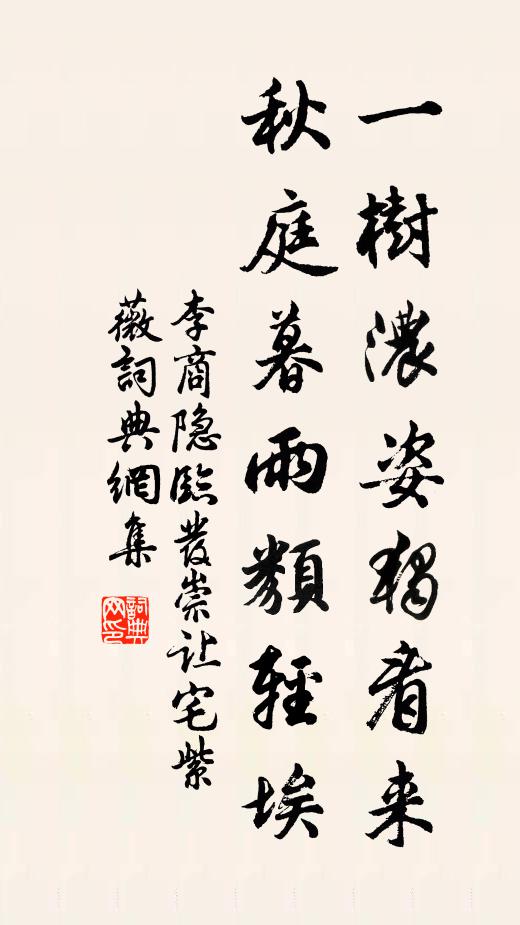 一樹濃姿獨看来
秋庭暮雨類輕埃
李商隐臨發崇让宅紫
薇詞典網集
詞典网印